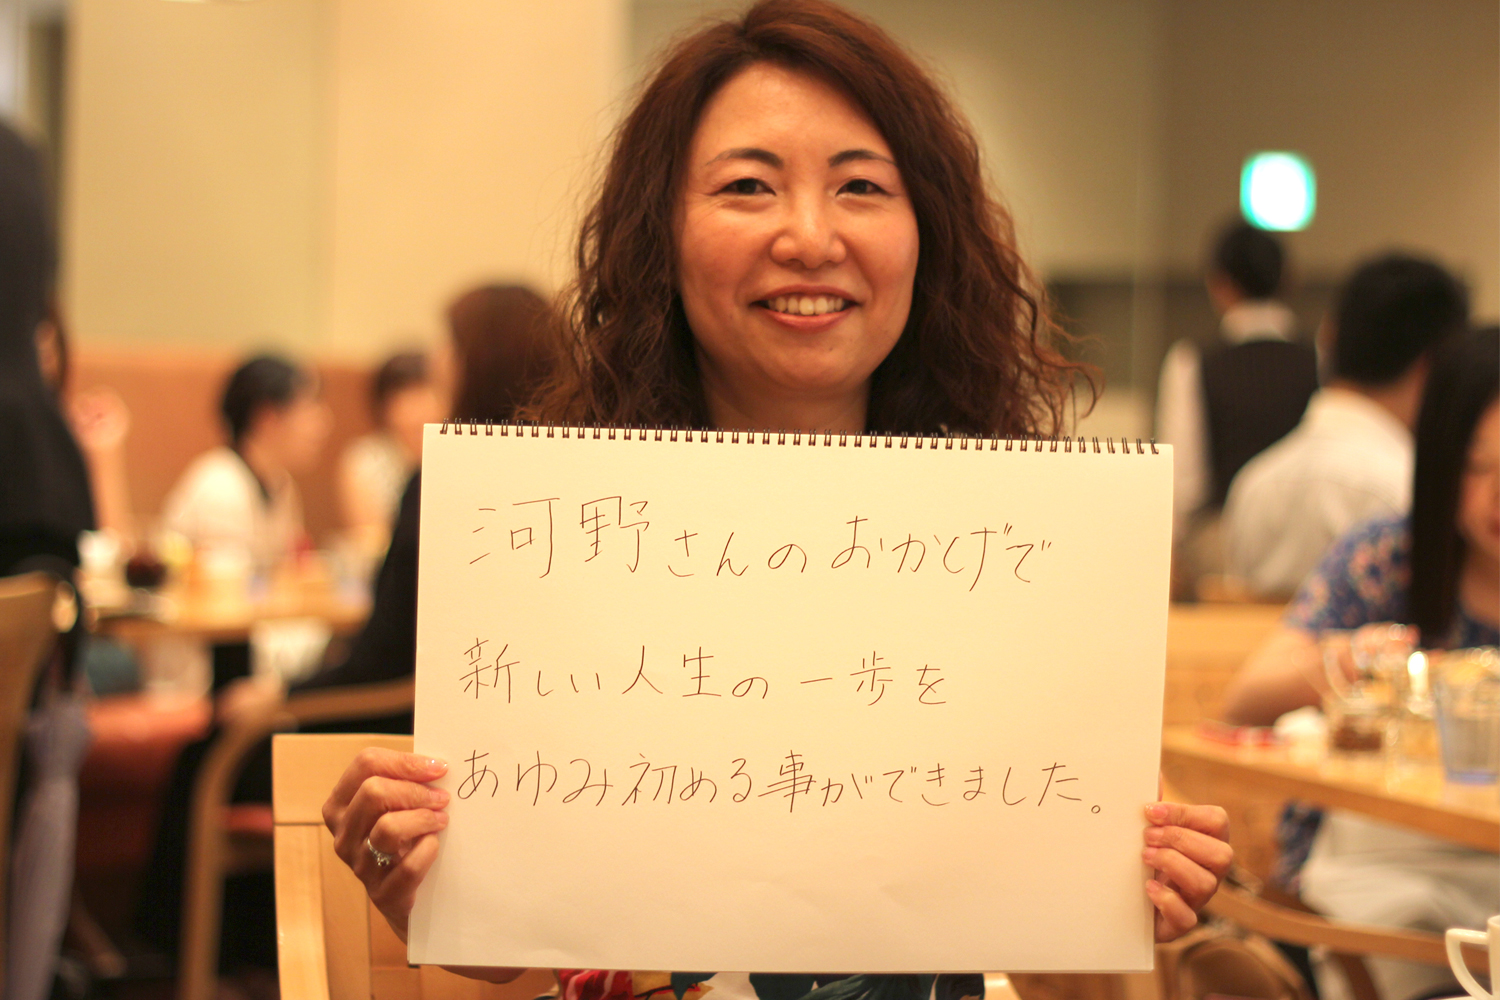 河野さんのおかげで
新しい人生の一歩を
あゆみ初める事ができました。